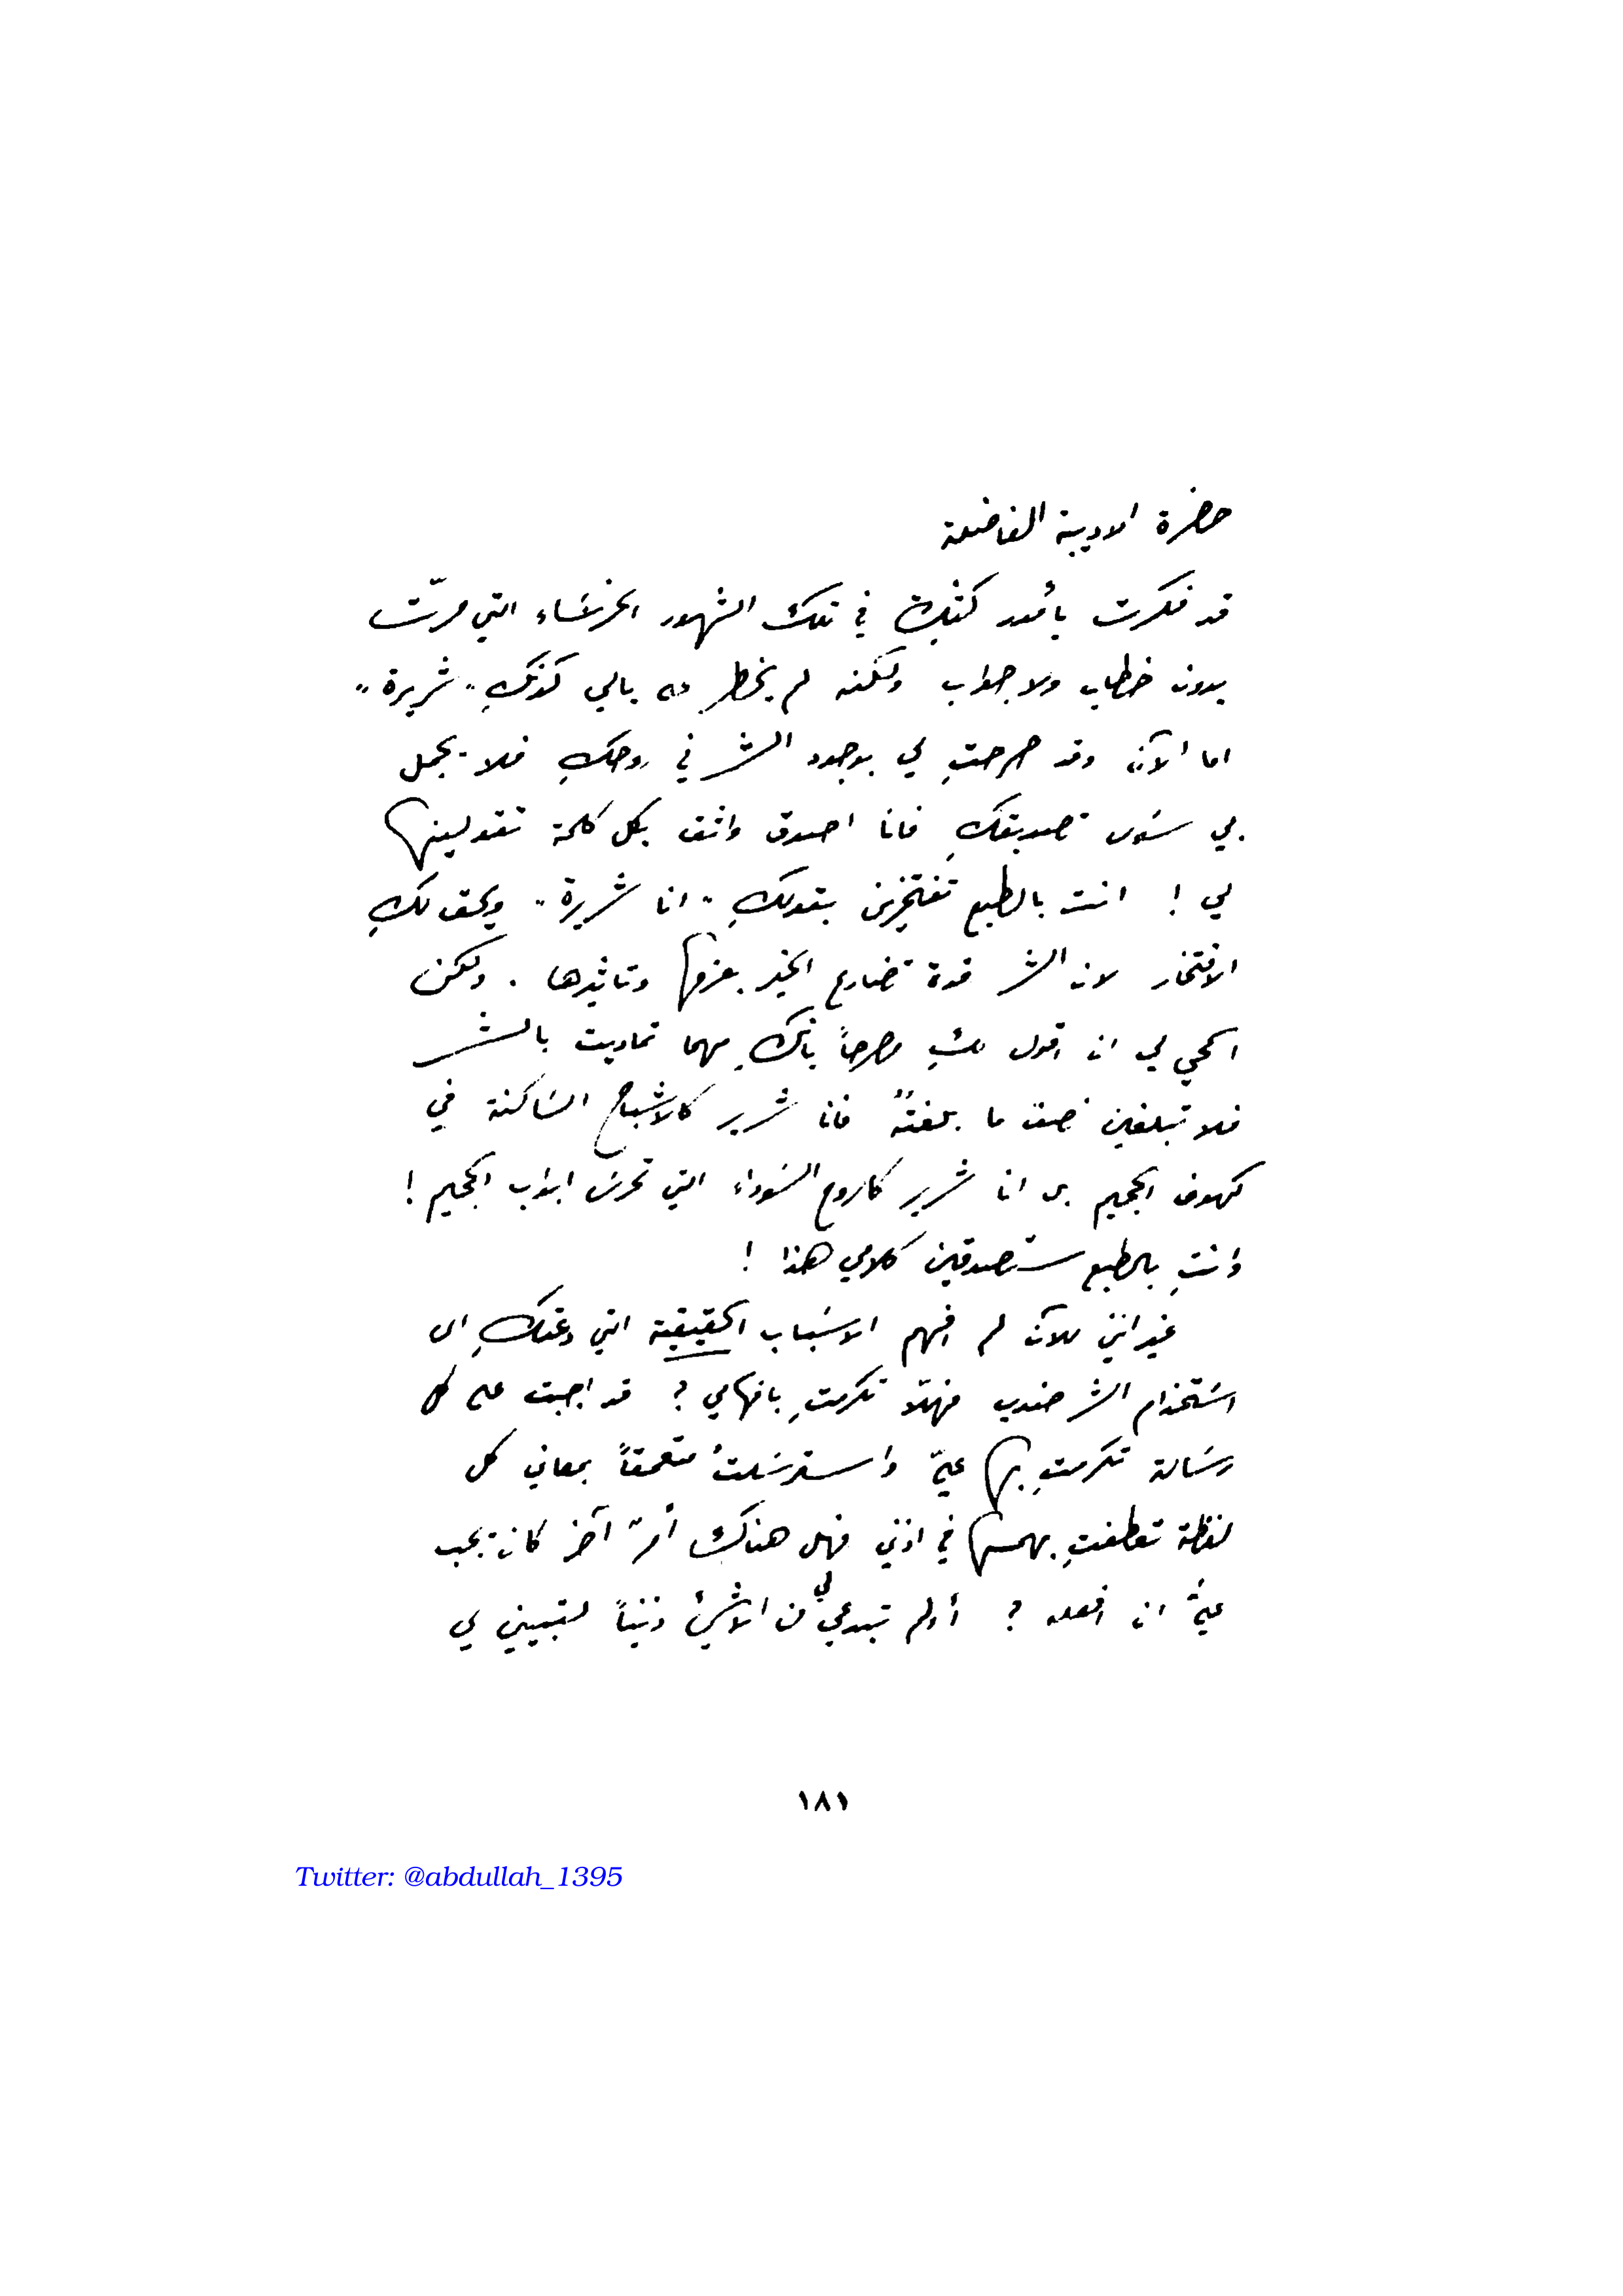 حضرة الاديبة الفاضلة
قد فكرت بأمور كثيرة في تلك الشهور الخرساء التي مرّت
بدون خطاب ولا جواب ولكنه لم يخطر على بالي كونكِ "شريرة"
اما الآن وقد صرحتِ لي بوجود الشر في روحكِ فلا يجمل
بي سوى تصديقكِ فانا اصدق واثق بكل كلمة تقولينها
لي ! انت بالطبع تفتخرين بقولكِ "انا شريرة" ويحق لكِ
الافتخار لان الشر قوة تضارع الخير بعزمها وتاثيرها . ولكن
اسمحي لي ان اقول لكِ مصرحاً بانكِ مهما تماديت بالشر
فلا تبلغين نصف ما بلغتهُ فانا شرير كالاشباح الساكنة في
كهوف الجحيم بل انا شرير كالروح السوداء التي تحرس ابواب الجحيم !
وانتِ بالطبع ستصدقين كلامي هذا !
غير انني للآن لم افهم الاسباب الحقيقية التي دعتكِ الى
استخدام الشر ضدي فهلّا تكرمتِ بافهامي ؟ قد اجبت على كل
رسالة تكرمتِ بها عليّ واسترسلتُ متعمقاً بمعاني كل
لفظة تعطفتِ بهمسها في اذني فهل هناك أمرٌ آخر كان يجب
عليَّ ان افعله ؟ أولم تبدعي لي من الاشيْ ذنباً لتبيني لي
١٨١
Twitter: @abdullah_1395